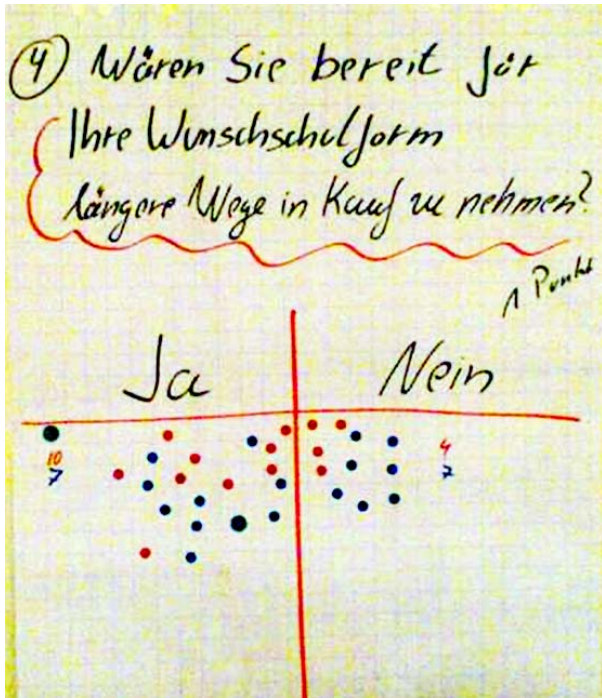 4 Wären Sie bereit für
Ihre Wunschschulform
längere Wege in Kauf zu nehmen?
1 Punkt
Ja
Nein
10
7
4
7